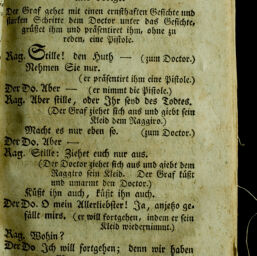 er Graf gehet mit einen ernsthaften Gesichte und
starken Schritte dem Doctor unter das Gesichte,
grüßet ihm und präsentiret ihm, ohne zu
reden, eine Pistole.
Rag. Stille! den Huth — (zum Doctor.)
Nehmen Sie nur.
(er präsentirt ihm eine Pistole.)
Der Do. Aber — (er nimmt die Pistole.)
Rag. Aber stille, oder Ihr seyd des Todtes.
(Der Graf ziehet sich aus und giebt sein
Kleid dem Raggiro.)
Macht es nur eben so. (zum Doctor.)
Der Do. Aber —
Rag. Stille: Ziehet euch nur aus.
(Der Doctor ziehet sich aus und giebt dem
Raggiro sein Kleid. Der Graf küßt
und umarmt den Doctor.)
Küßt ihn auch, küßt ihn auch.
Der Do. O mein Allerliebster! Ja, anjetzo ge-
fällt mirs. (er will fortgehen, indem er sein
Kleid wiedernimmt.)
Rag. Wohin?
Der Do Ich will fortgehen; denn wir haben